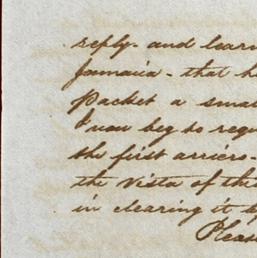 reply - and learn
Jamaica - that h
Packet a smal
I now beg to requ
the first arriero -
the vista of thi
in clearing it
Please